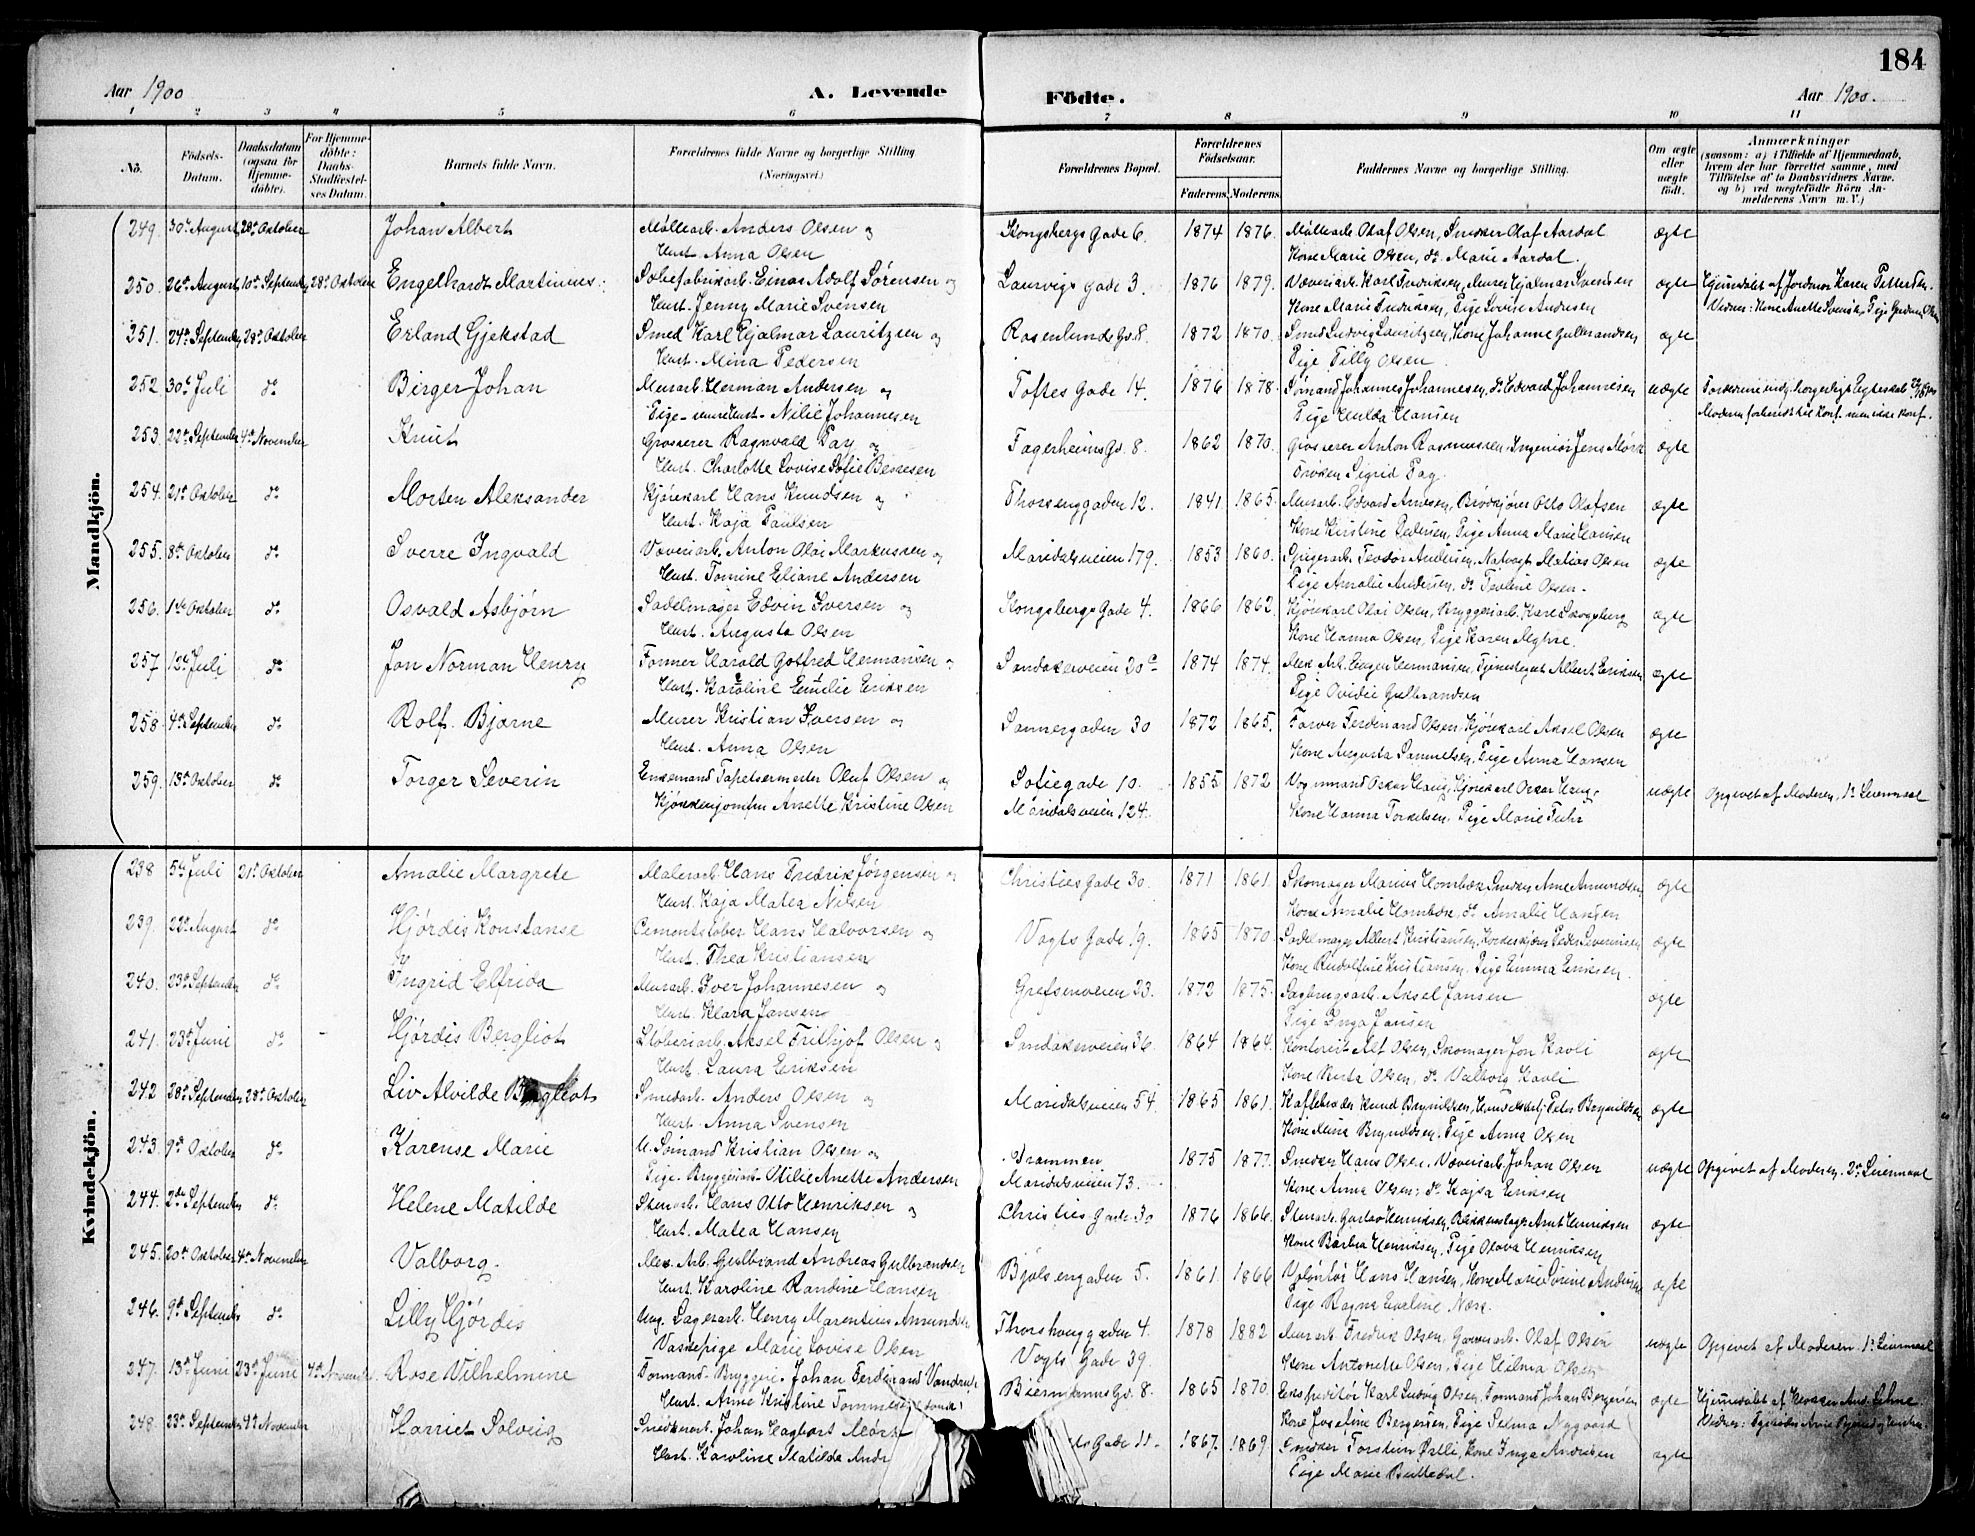 184
Aar 1900
A. Levende
Födte.
Aar 1900.
1 2 3 4 5 6 7 8 9 10 11
No.
Födsels-Datum.
Daabsdatum (ogsaa for Hjemmedöbte).
For Hjemmedöbte: Daabs-Stadfæstelses Datum.
Barnets fulde Navn.
Forældrenes fulde Navne og borgerlige Stilling (Næringsvei.)
Forældrenes Bopæl.
Forældrenes Födselsaar.
Faderens. Moderens.
Faddernes Navne og borgerlige Stilling.
Om ægte eller uægte födt.
Anmærkninger
(saasom: a) i Tilfælde af Hjemmedaab, hvem der har forrettet samme, med Tilföielse af to Daabsvidners Navne, og b) ved uægtefödte Börn Anmelderens Navn m. V.)
Mandkjön.
249. 30te August 28de Oktober Johan Albert Møllearb. Anders Olsen og Kongsbergs Gade 6. 1874 1876. Møllearb. Olaf Olsen, Snedker Olaf Aardal ægte
Hust. Anna Olsen Kone Marie Olsen, do Marie Aardal.
250. 26de August 10de September 28de Oktober Engelhardt Martinius Sæbefabrikarb. Einar Adolf Sørensen og Laurvigs Gade 3. 1876 1879. Væveriarb. Karl Fredriksen, Murer Hjalmar Svendsen ægte Hjemmedøbt af Jordmor Karen Pettersen.
Hust. Jenny Marie Svensen Kone Marie Fredriksen, Pige Lovise Andresen
251. 24de September 28de Oktober Erland Gjekstad Smed Karl Hjalmar Lauritzen og Rosenlunds Gd. 8. 1872 1870. Smed Ludvig Lauritzen, Kone Johanne Gulbrandsen ægte
Hust. Mina Pedersen Pige Tilly Olsen
252 30te Juli do Birger Johan Murarb. Herman Andersen og Toftes Gade 14. 1876 1878. Sømand Johannes Johannesen, do Edvard Johannesen uægte
Pige Nilie Johannesen Pige Hulda Hansen
253. 22de September 4de November Knut Grosserer Ragnvald Pay og Fagerheims Gd. 8. 1862 1870. Grosserer Anton Rasmussen, Ingeniør Jens Mørk ægte
Hust. Charlotte Lovise Sofie Frøken Sigrid Pay.
254. 21de Oktober do Morten Aleksander Kjørekarl Hans Knudsen og Thorshuggaden 12. 1841 1865. Murarb. Edvard Arnesen, Brødkjører Otto Olafsen ægte
Hust. Kaja Paulsen Kone Kirstine Pedersen, Pige Anna Marie Hansen
255. 8de Oktober do Sverre Ingvald Væveriarb. Anton Olai Markussen og Maridalsveien 179. 1853 1860. Spigerarb. Teodor Andersen, Natvagt Matias Olsen ægte
Hust. Tomine Eliane Andersen Pige Amalie Andersen, do Teoline Olsen.
256. 1ste Oktober do Osvald Asbjørn Sadelmager Edvin Iversen og Kongsbergs Gade 4. 1866 1862. Kjørekarl Olai Olsen, Bryggeriarb. Karl Skogsberg ægte
Hust. Augusta Olsen Kone Hanna Olsen, Pige Karen Myhre.
257 12te Juli do Jon Norman Henry Former Harald Gotfred Hermansen og Sandakerveien 20c 1874 1874. Mek. Arb. Eugen Hermansen, Tjenestegut Albert Eriksen ægte
Hust. Karoline Emilie Eriksen Pige Ovidie Gulbrandsen
258. 4de September do Rolf Bjarne Murer Kristian Iversen og Sannergaden 30 1872 1865. Farver Ferdinand Olsen, Kjørekarl Aksel Olsen ægte
Hust. Anna Olsen Kone Augusta Samuelsen, Pige Anna Hansen
259. 13de Oktober do Torger Severin Enkemand Tapetsermester Oluf Olsen og Sofiegade 10. 1855 1872 Vognmand Oskar Haug, Kjørekarl Oskar Haug. uægte Opgivet af Moderen, 1ste Leiermaal
Kjøkkenjomfru Anette Kristine Olsen Maridalsveien 124. Kone Hanna Torkelsen, Pige Marie Fuhr
Kvindekjön.
238 5te Juli 21de Oktober Amalie Margrete Malerarb. Hans Fredrik Jørgensen og Christies Gade 30. 1871 1861. Skomager Marius Hornbæk Snedker Arne Amundsen ægte
Hust. Kaja Matea Nilsen Kone Amalie Hornbæk, do Amalie Hansen
239. 22de August do Hjørdis Konstanse Cementstøber Hans Halvorsen og Vogts Gade 19. 1865 1870. Sadelmager Albert Kristiansen, Peder Severinsen ægte
Hust. Thea Kristiansen Kone Rudolfine Kristiansen. Pige Emma Eriksen.
240. 23de September do Ingrid Elfrida Murarb. Iver Johannesen og Grefsenveien 23. 1872 1875. Sagbrugsarb. Aksel Jansen ægte
Hust. Klara Jansen Pige Inga Jansen
241. 23de Juni do Hjørdis Bergliot Støberiarb. Aksel Frithjof Olsen og Sandakerveien 36. 1864 1864. Kontorist Alf Olsen, Skomager Jon Kavli ægte
Hust. Laura Eriksen Kone Berta Olsen, do Valborg Kavli
242 28de September 28de Oktober Liv Alvilde Bergliot Smedarb. Anders Olsen og Maridalsveien 54. 1865 1861. Knud Brynildsen, Peter Brynildsen ægte
Hust. Anna Svensen Kone Mina Brynildsen. Pige Anna Olsen
243. 9de Oktober do Karense Marie U. Sømand Kristian Olsen og Drammen 1875 1877. Snedker Hans Olsen, Væveriarb. Johan Olsen uægte Opgivet af Moderen. 2det Leiermaal
Pige Bryggeriarb. Otilie Anette Andersen Maridalsveien 73. Kone Anna Olsen, do Kajsa Eriksen
244. 2den September do Helene Matilde Stenarb. Hans Otto Henriksen og Christies Gade 30 1876 1866. Stenarb. Gustav Henriksen, Blikkenslager Arnt Henriksen ægte
Hust. Matea Hansen Kone Barbra Henriksen, Pige Olava Henriksen
245. 20de Oktober 4de November Valborg. Mek. Arb. Gulbrand Andreas Gulbrandsen Bjølsengaden 5. 1861. 1866 Hans Hansen, Kone Marie Sørine Andersen ægte
Hust. Karoline Randine Hansen Pige Ragna Eveline Næss.
246. 9de September do Lilly Hjørdis Ung. Lagerarb. Henry Marentius Amundsen Thorshauggaden 4. 1878 1882 Murarb. Fredrik Olsen, Garverarb. Olaf Olsen uægte Opgivet af Moderen. 1ste Leiermaal
Vaskepige Marie Lovise Olsen Vogts Gade 39. Kone Antonette Olsen, Pige Hilma Olsen
247. 13de Juni 23de Juni 4de November Rose Vilhelmine Formand Bryggeri Johan Ferdinand Biermanns Gd. 8. 1865 1870. Ekspeditør Karl Ludvig Olsen, Formand Johan Bergersen ægte
Hust. Anne Kirstine Kone Josefine Bergersen, Pige Selma Nygaard
248. 23de September 4de November Harriet Solveig Snedkerarb. Johan Hagbart Mørk Gade 11. 1867. 1869. Snedker Torstein Østli, Kone Inga Andresen ægte
Hust. Karoline Matilda Andr Pige Marie